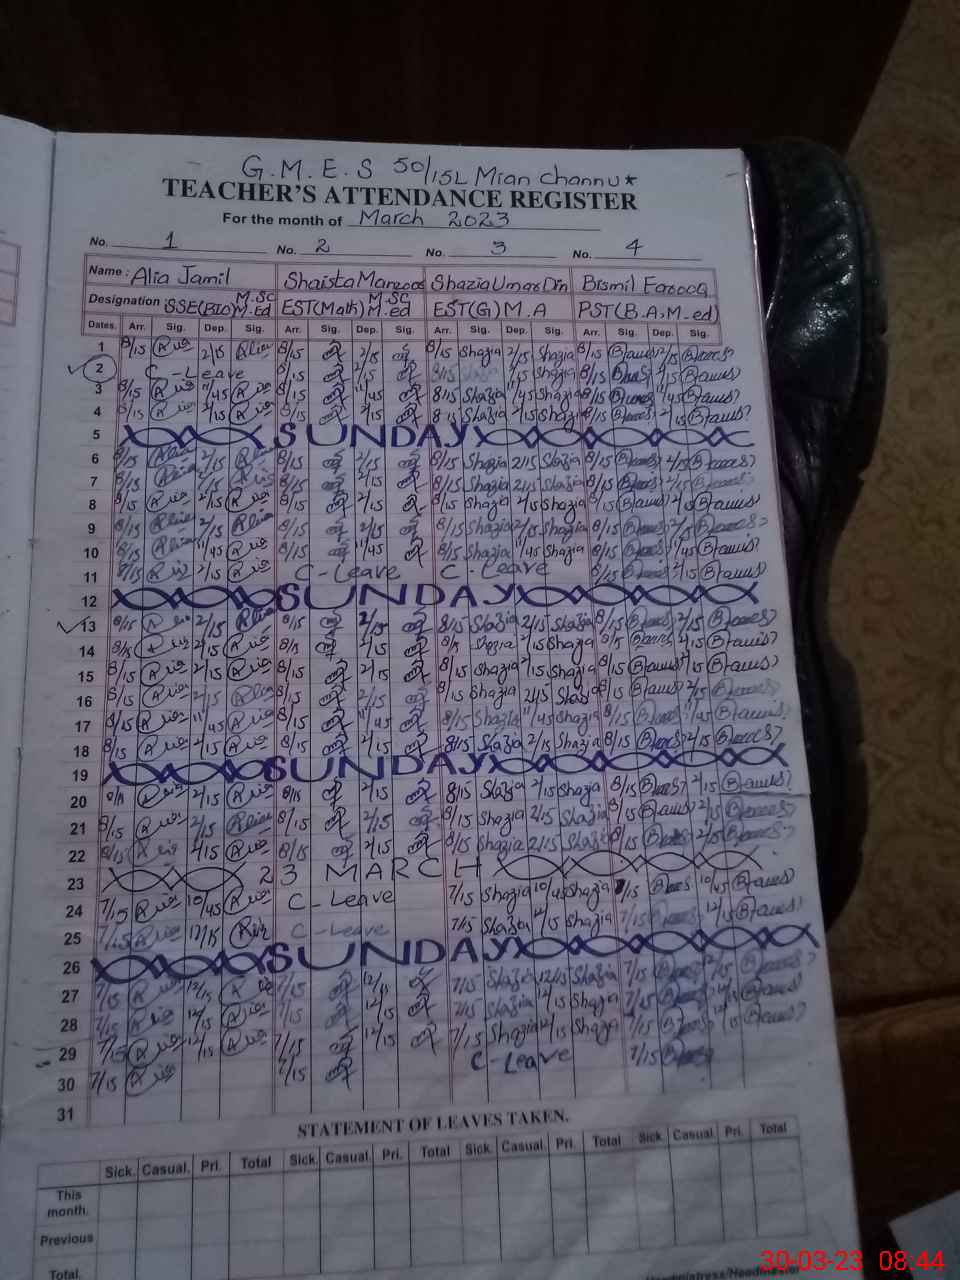 G.M.E.S 50/15L Mian Channu*
TEACHER'S ATTENDANCE REGISTER
For the month of March 2023
No. 1 No. 2 No. 3 No. 4
Name: Alia Jamil Shaista Manzoor Shazia Umar Din Bismil Farooq
Designation SSE(BIO) M.SC M.Ed EST(Math) M.SC M.ed EST(G) M.A PST(B.A, M.ed)
Dates. Arr. Sig. Dep. Sig. Arr. Sig. Dep. Sig. Arr. Sig. Dep. Sig. Arr. Sig. Dep. Sig.
1 8/15 Alia 2/15 Alia 8/15 2/15 8/15 Shazia 2/15 Shazia 8/15 2/15
2 C-Leave 8/15 2/15 8/15 Shazia 2/15 Shazia 8/15 2/15
3 8/15 Alia 11/45 Alia 8/15 11/45 8/15 Shazia 11/45 Shazia 8/15 11/45
4 8/15 Alia 2/15 Alia 8/15 2/15 8/15 Shazia 2/15 Shazia 8/15 2/15
5 SUNDAY
6 8/15 Alia 2/15 Alia 8/15 2/15 8/15 Shazia 2/15 Shazia 8/15 2/15
7 8/15 Alia 2/15 Alia 8/15 2/15 8/15 Shazia 2/15 Shazia 8/15 2/15
8 8/15 Alia 2/15 Alia 8/15 2/15 8/15 Shazia 2/15 Shazia 8/15 2/15
9 8/15 Alia 2/15 Alia 8/15 2/15 8/15 Shazia 2/15 Shazia 8/15 2/15
10 8/15 Alia 11/45 Alia 8/15 11/45 8/15 Shazia 11/45 Shazia 8/15 11/45
11 8/15 Alia 2/15 Alia C-Leave C-Leave 8/15 2/15
12 SUNDAY
13 8/15 Alia 2/15 Alia 8/15 2/15 8/15 Shazia 2/15 Shazia 8/15 2/15
14 8/15 Alia 2/15 Alia 8/15 2/15 8/15 Shazia 2/15 Shazia 8/15 2/15
15 8/15 Alia 2/15 Alia 8/15 2/15 8/15 Shazia 2/15 Shazia 8/15 2/15
16 8/15 Alia 2/15 Alia 8/15 2/15 8/15 Shazia 2/15 Shazia 8/15 2/15
17 8/15 Alia 11/45 Alia 8/15 11/45 8/15 Shazia 11/45 Shazia 8/15 11/45
18 8/15 Alia 2/15 Alia 8/15 2/15 8/15 Shazia 2/15 Shazia 8/15 2/15
19 SUNDAY
20 8/15 Alia 2/15 Alia 8/15 2/15 8/15 Shazia 2/15 Shazia 8/15 2/15
21 8/15 Alia 2/15 Alia 8/15 2/15 8/15 Shazia 2/15 Shazia 8/15 2/15
22 8/15 Alia 2/15 Alia 8/15 2/15 8/15 Shazia 2/15 Shazia 8/15 2/15
23 23 MARCH
24 7/15 Alia 10/45 Alia C-Leave 7/15 Shazia 10/45 Shazia 7/15 10/45
25 7/15 Alia 12/15 Alia C-Leave 7/15 Shazia 12/15 Shazia 7/15 12/15
26 SUNDAY
27 7/15 Alia 12/15 Alia 7/15 12/15 7/15 Shazia 12/15 Shazia 7/15 12/15
28 7/15 Alia 12/15 Alia 7/15 12/15 7/15 Shazia 12/15 Shazia 7/15 12/15
29 7/15 Alia 12/15 Alia 7/15 12/15 7/15 Shazia 12/15 Shazia 7/15 12/15
30 7/15 Alia 7/15 C-Leave 7/15
31
STATEMENT OF LEAVES TAKEN.
Sick. Casual. Pri. Total Sick. Casual. Pri. Total Sick. Casual. Pri. Total Sick. Casual. Pri. Total
This month.
Previous
Total.
30-03-23 08:44